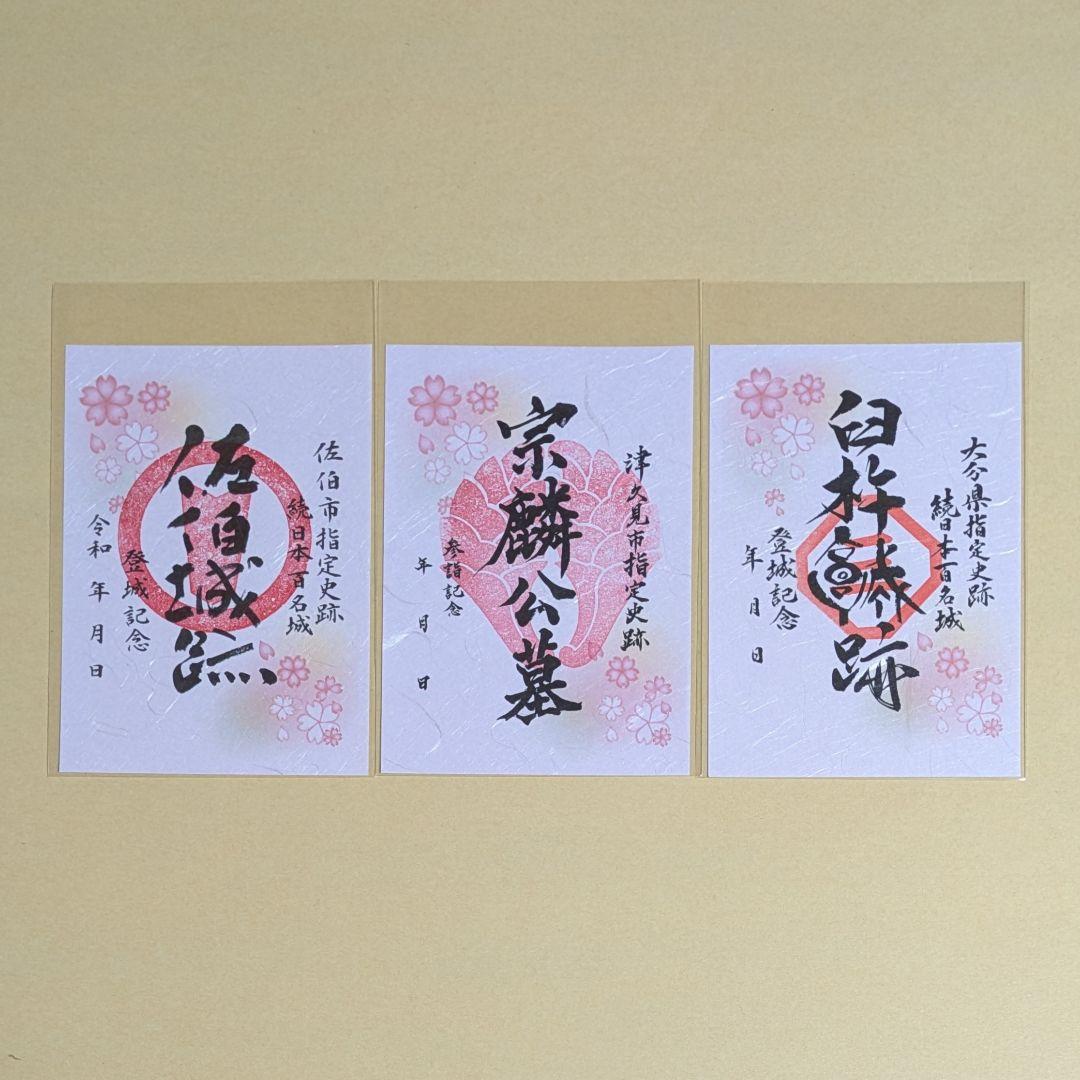 佐伯市指定史跡
続日本百名城
佐伯城跡
登城記念
令和 年 月 日
津久見市指定史跡
宗麟公墓
参詣記念
年 月 日
大分県指定史跡
続日本百名城
臼杵城跡
登城記念
年 月 日